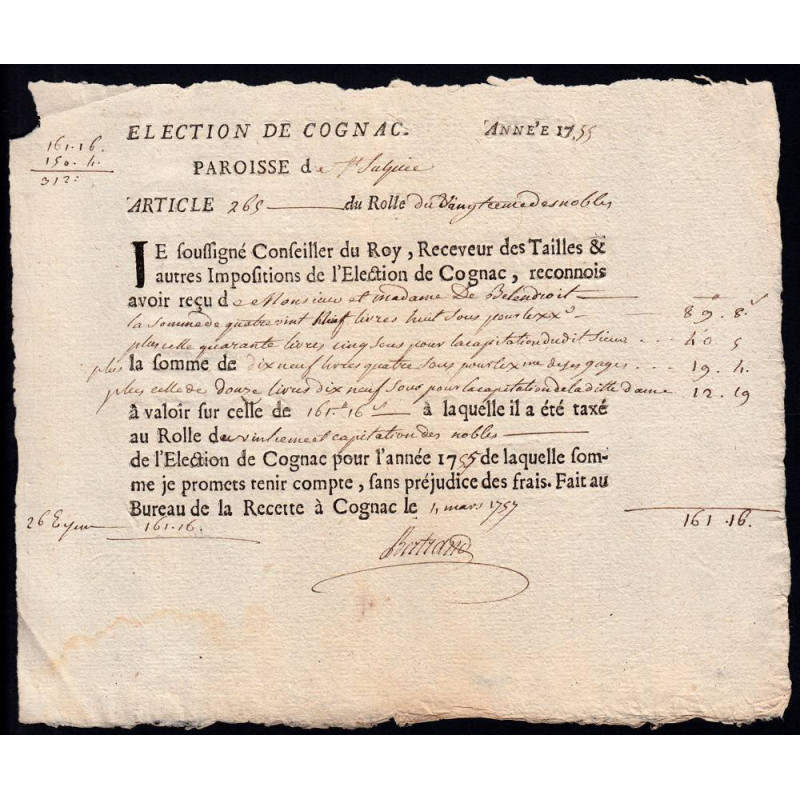 161.16.
150.4.
312:
ELECTION DE COGNAC. ANNÉE 1755
PAROISSE de St Sulpice
ARTICLE 265 du Rolle du Vingtieme des nobles
JE soussigné Conseiller du Roy, Receveur des Tailles &
autres Impositions de l'Election de Cognac, reconnois
avoir reçu de Monsieur et madame De
la somme de quatre vint Neuf livres huit sous pour le xxe 89. 8s
plus celle quarante livres cinq sous pour la capitation dudit sieur 40 5
plus la somme de dix neuf livres quatre sous pour le xxme de ses gages 19. 4.
plus celle de douze livres dix neuf sous pour la capitation de la ditte dame 12. 19
à valoir sur celle de 161# 16s à laquelle il a été taxé
au Rolle du vintieme et capitation des nobles
de l'Election de Cognac pour l'année 1755 de laquelle som-
me je promets tenir compte, sans préjudice des frais. Fait au
Bureau de la Recette à Cognac le mars 1757
26 161.16. 161.16.
Bertrand